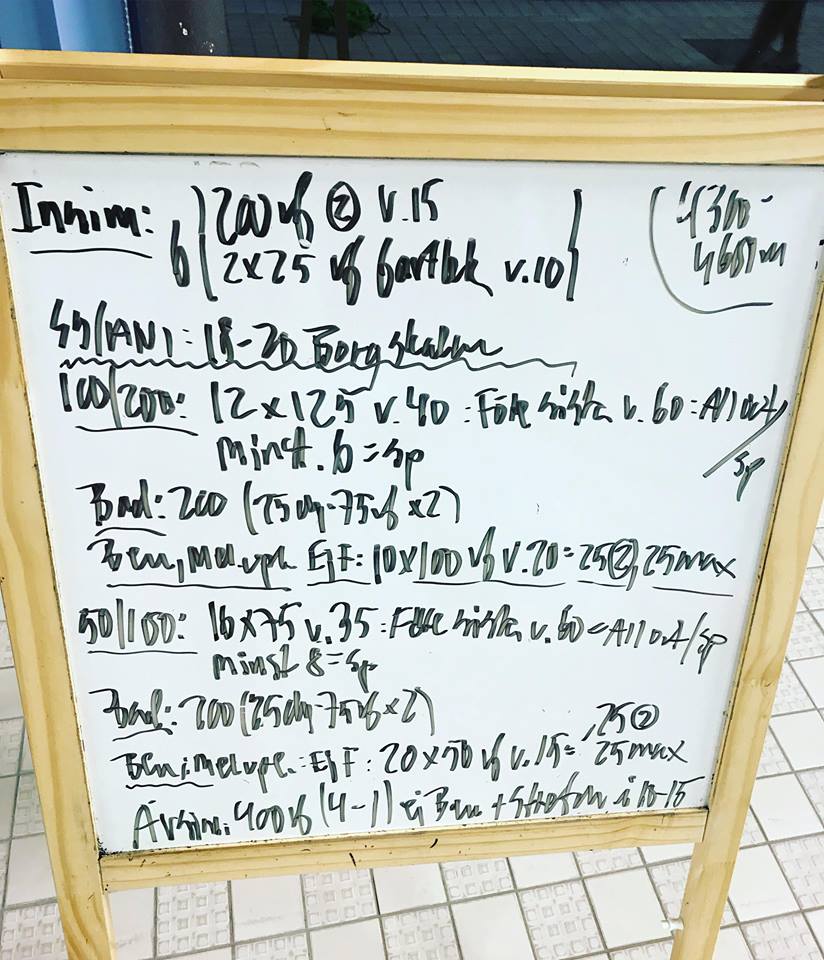 Insim: 6 200 vf ② v.15
2x25 vf fartlek v.10
4300-
4600m
18-20 Borgskalan
100/200: 12x125 v.40 : Före sista v.60 = All out/
sp
minst. 6 = sp
Bad: 200 (25 -75vf x2)
Ben, Ej F: 10x100 vf v.20 = 25②, 25max
50/100: 16x75 v.35 : Före sista v.60 = All out/sp
minst 8 = sp
Bad: 200 (25 -75vf x2)
Ben, Ej F: 20x50 vf v.15 = 25②
25max
Avsim: 400vf (4-1) ej Ben + i 10-15